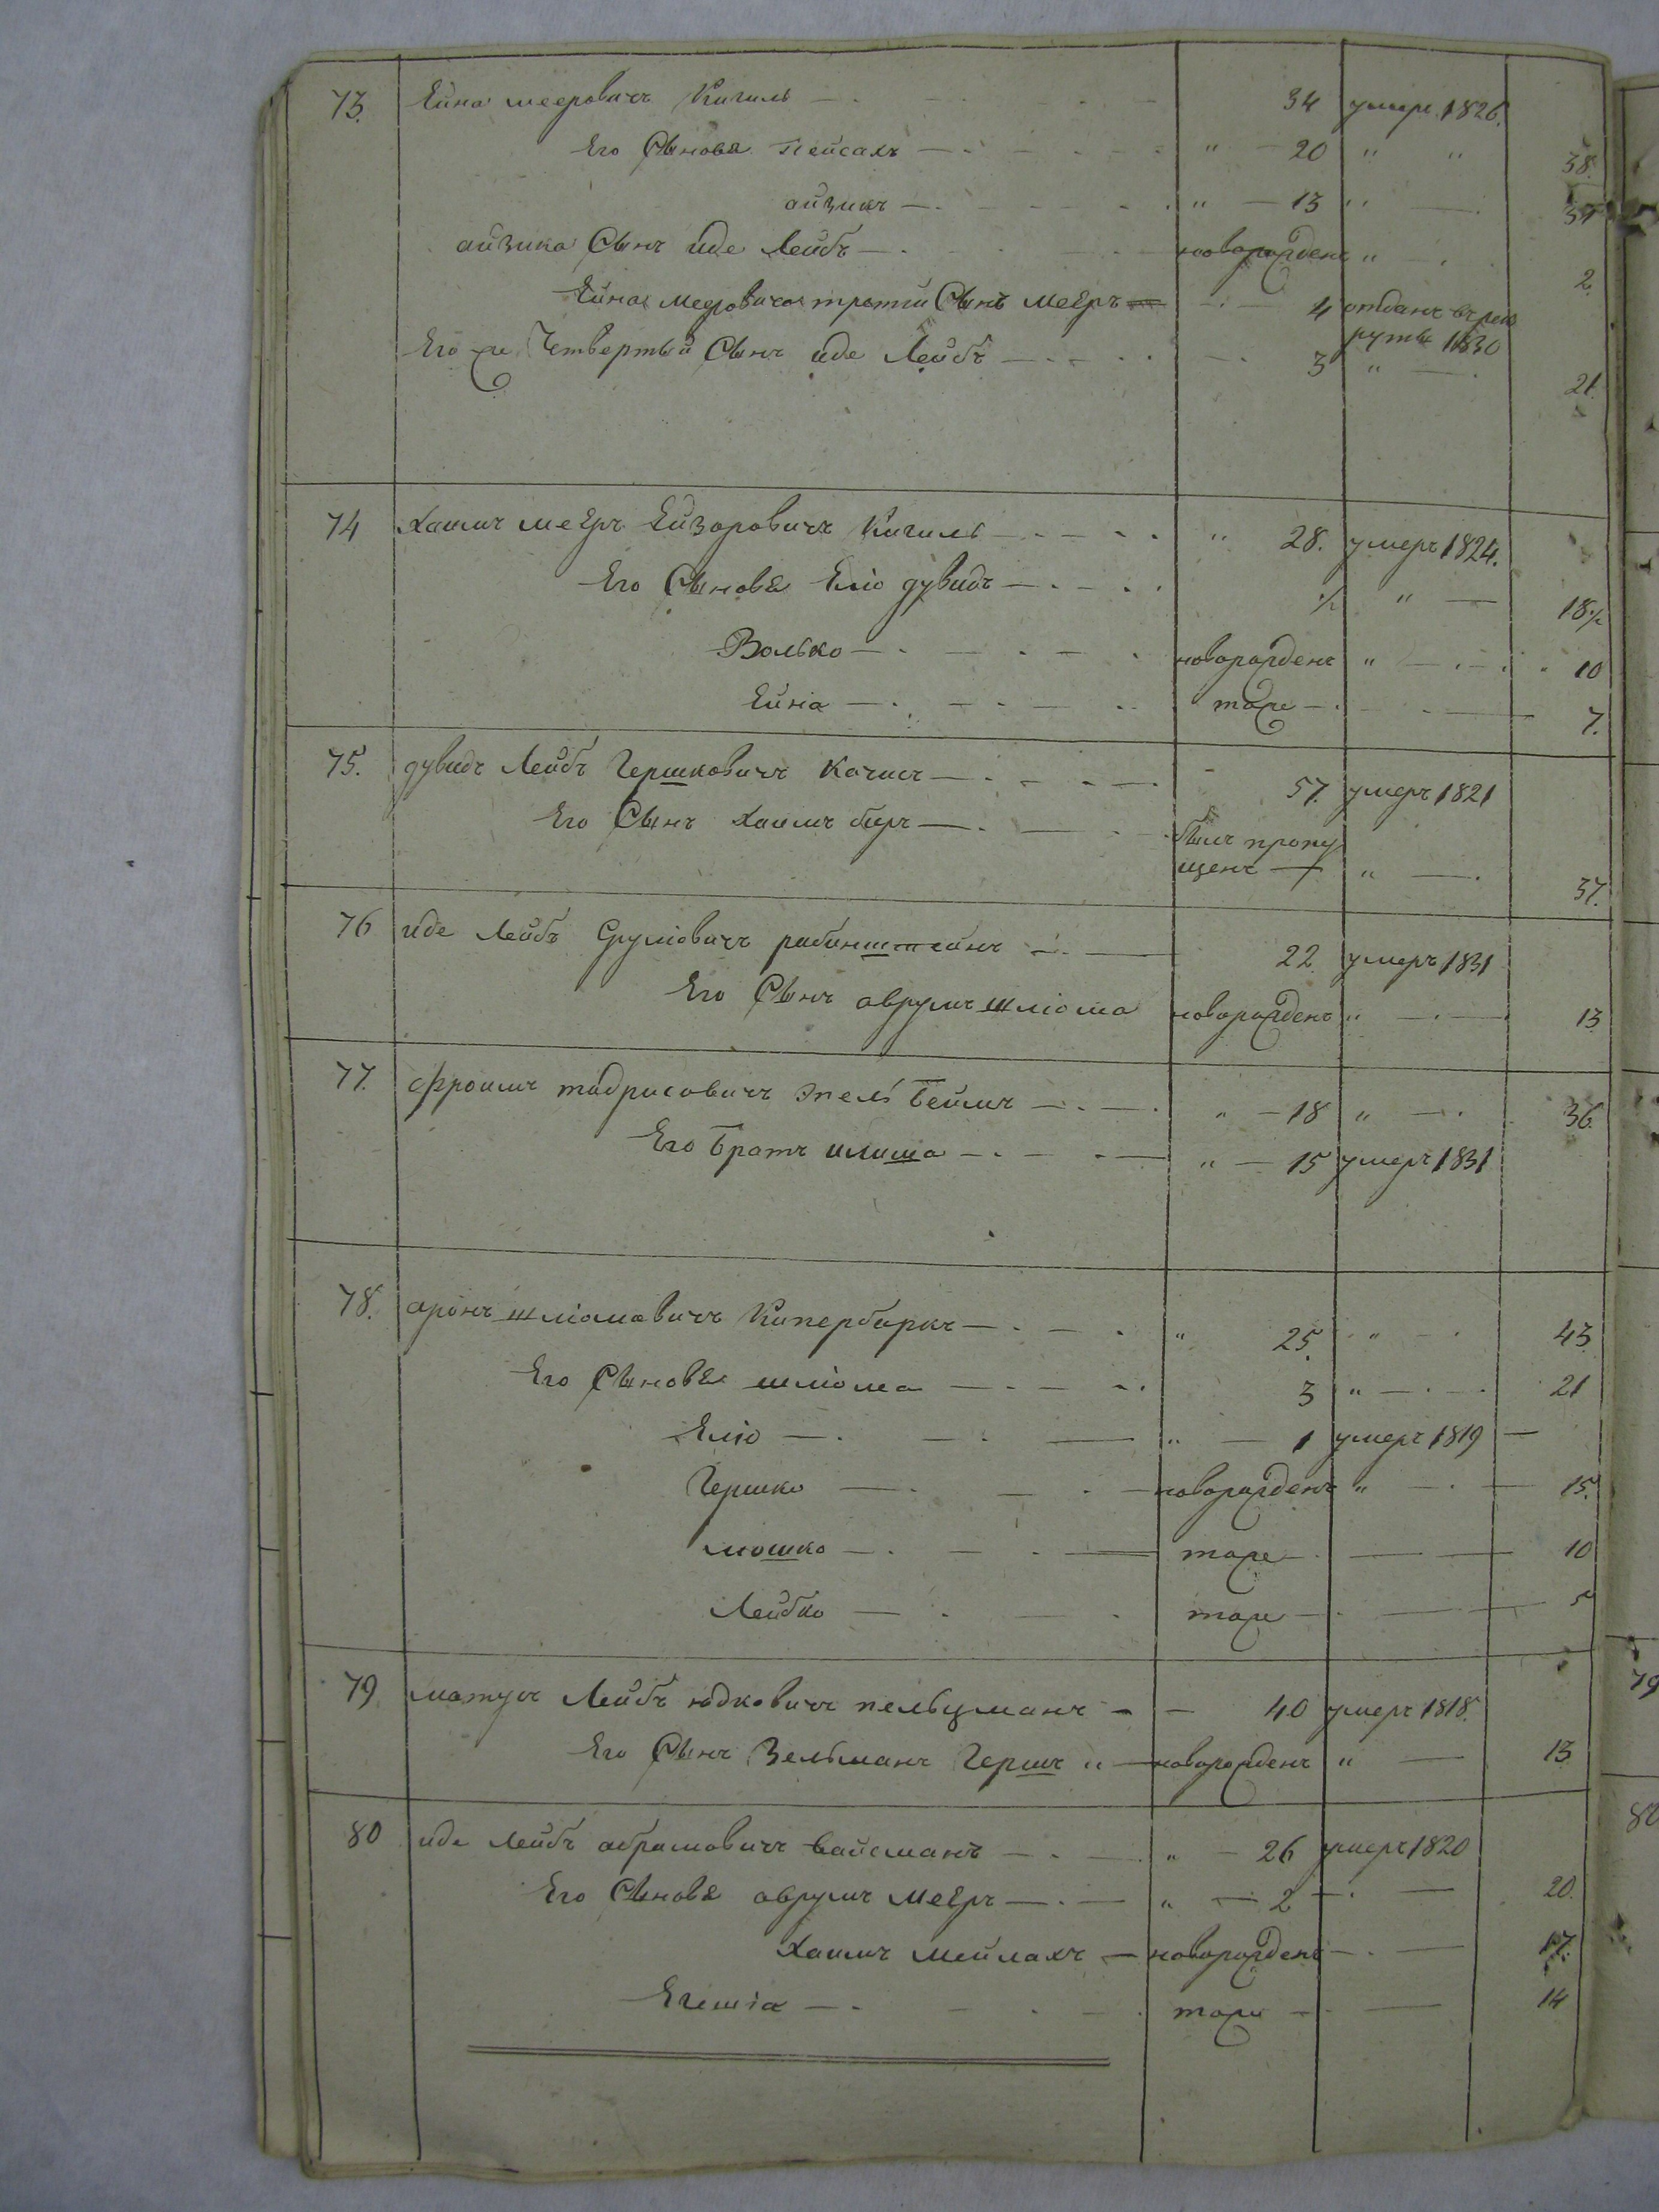 73. Ейна мееровичъ Кигиль — 34 умеръ 1826.
Его Сыновья Пейсахъ — " — 20 " " 38.
айзикъ — " — 13 " — 31
айзика Сынъ иде Лейбъ — новорожденъ " — 2.
Ейна Мееровича третий Сынъ Мееръ — 4 отданъ въ рек
руты 1830
Его же Четвертый Сынъ иде Лейбъ — 3 " — 21.
74 Хаимъ Мееръ Ейзоровичъ Кигиль — " 28. умеръ 1824.
Его Сыновья Еліо дувидъ — ½ " — 18½
Волько — новорожденъ " — 10
Ейніа — тоже — 7.
75. дувидъ Лейбъ Гершковичъ Качигъ — 57. умеръ 1821
Его Сынъ Хаимъ беръ — былъ пропу
щенъ — " — 37.
76 иде Лейбъ Сруліовичъ рабинштейнъ — 22. умеръ 1831
Его Сынъ аврумъ шліома новорожденъ " — 13
77. Фроимъ тадрисовичъ Эпель Беймъ — " — 18 " — 36.
Его Братъ шлиша — " — 15 умеръ 1831
78. аронъ шліомовичъ Кипербаркъ — " 25. " — 43.
Его Сыновья шліома — 3 " — 21
Еліо — " — 1 умеръ 1819 —
Гершко — новорожденъ " — 15.
мошко — тоже — 10
Лейбко — тоже — 5
79. матусъ Лейбъ юдковичъ пельцманъ — 40 умеръ 1818.
Его Сынъ Зельманъ Гершъ " — новорожденъ " — 13.
80 иде Лейбъ абрамовичъ вайсманъ — " — 26 умеръ 1820
Его Сыновья аврумъ Мееръ — " — 2 — 20.
Хаимъ Мейлахъ — новорожденъ — 17.
Егошіа — тоже — 14
79
80